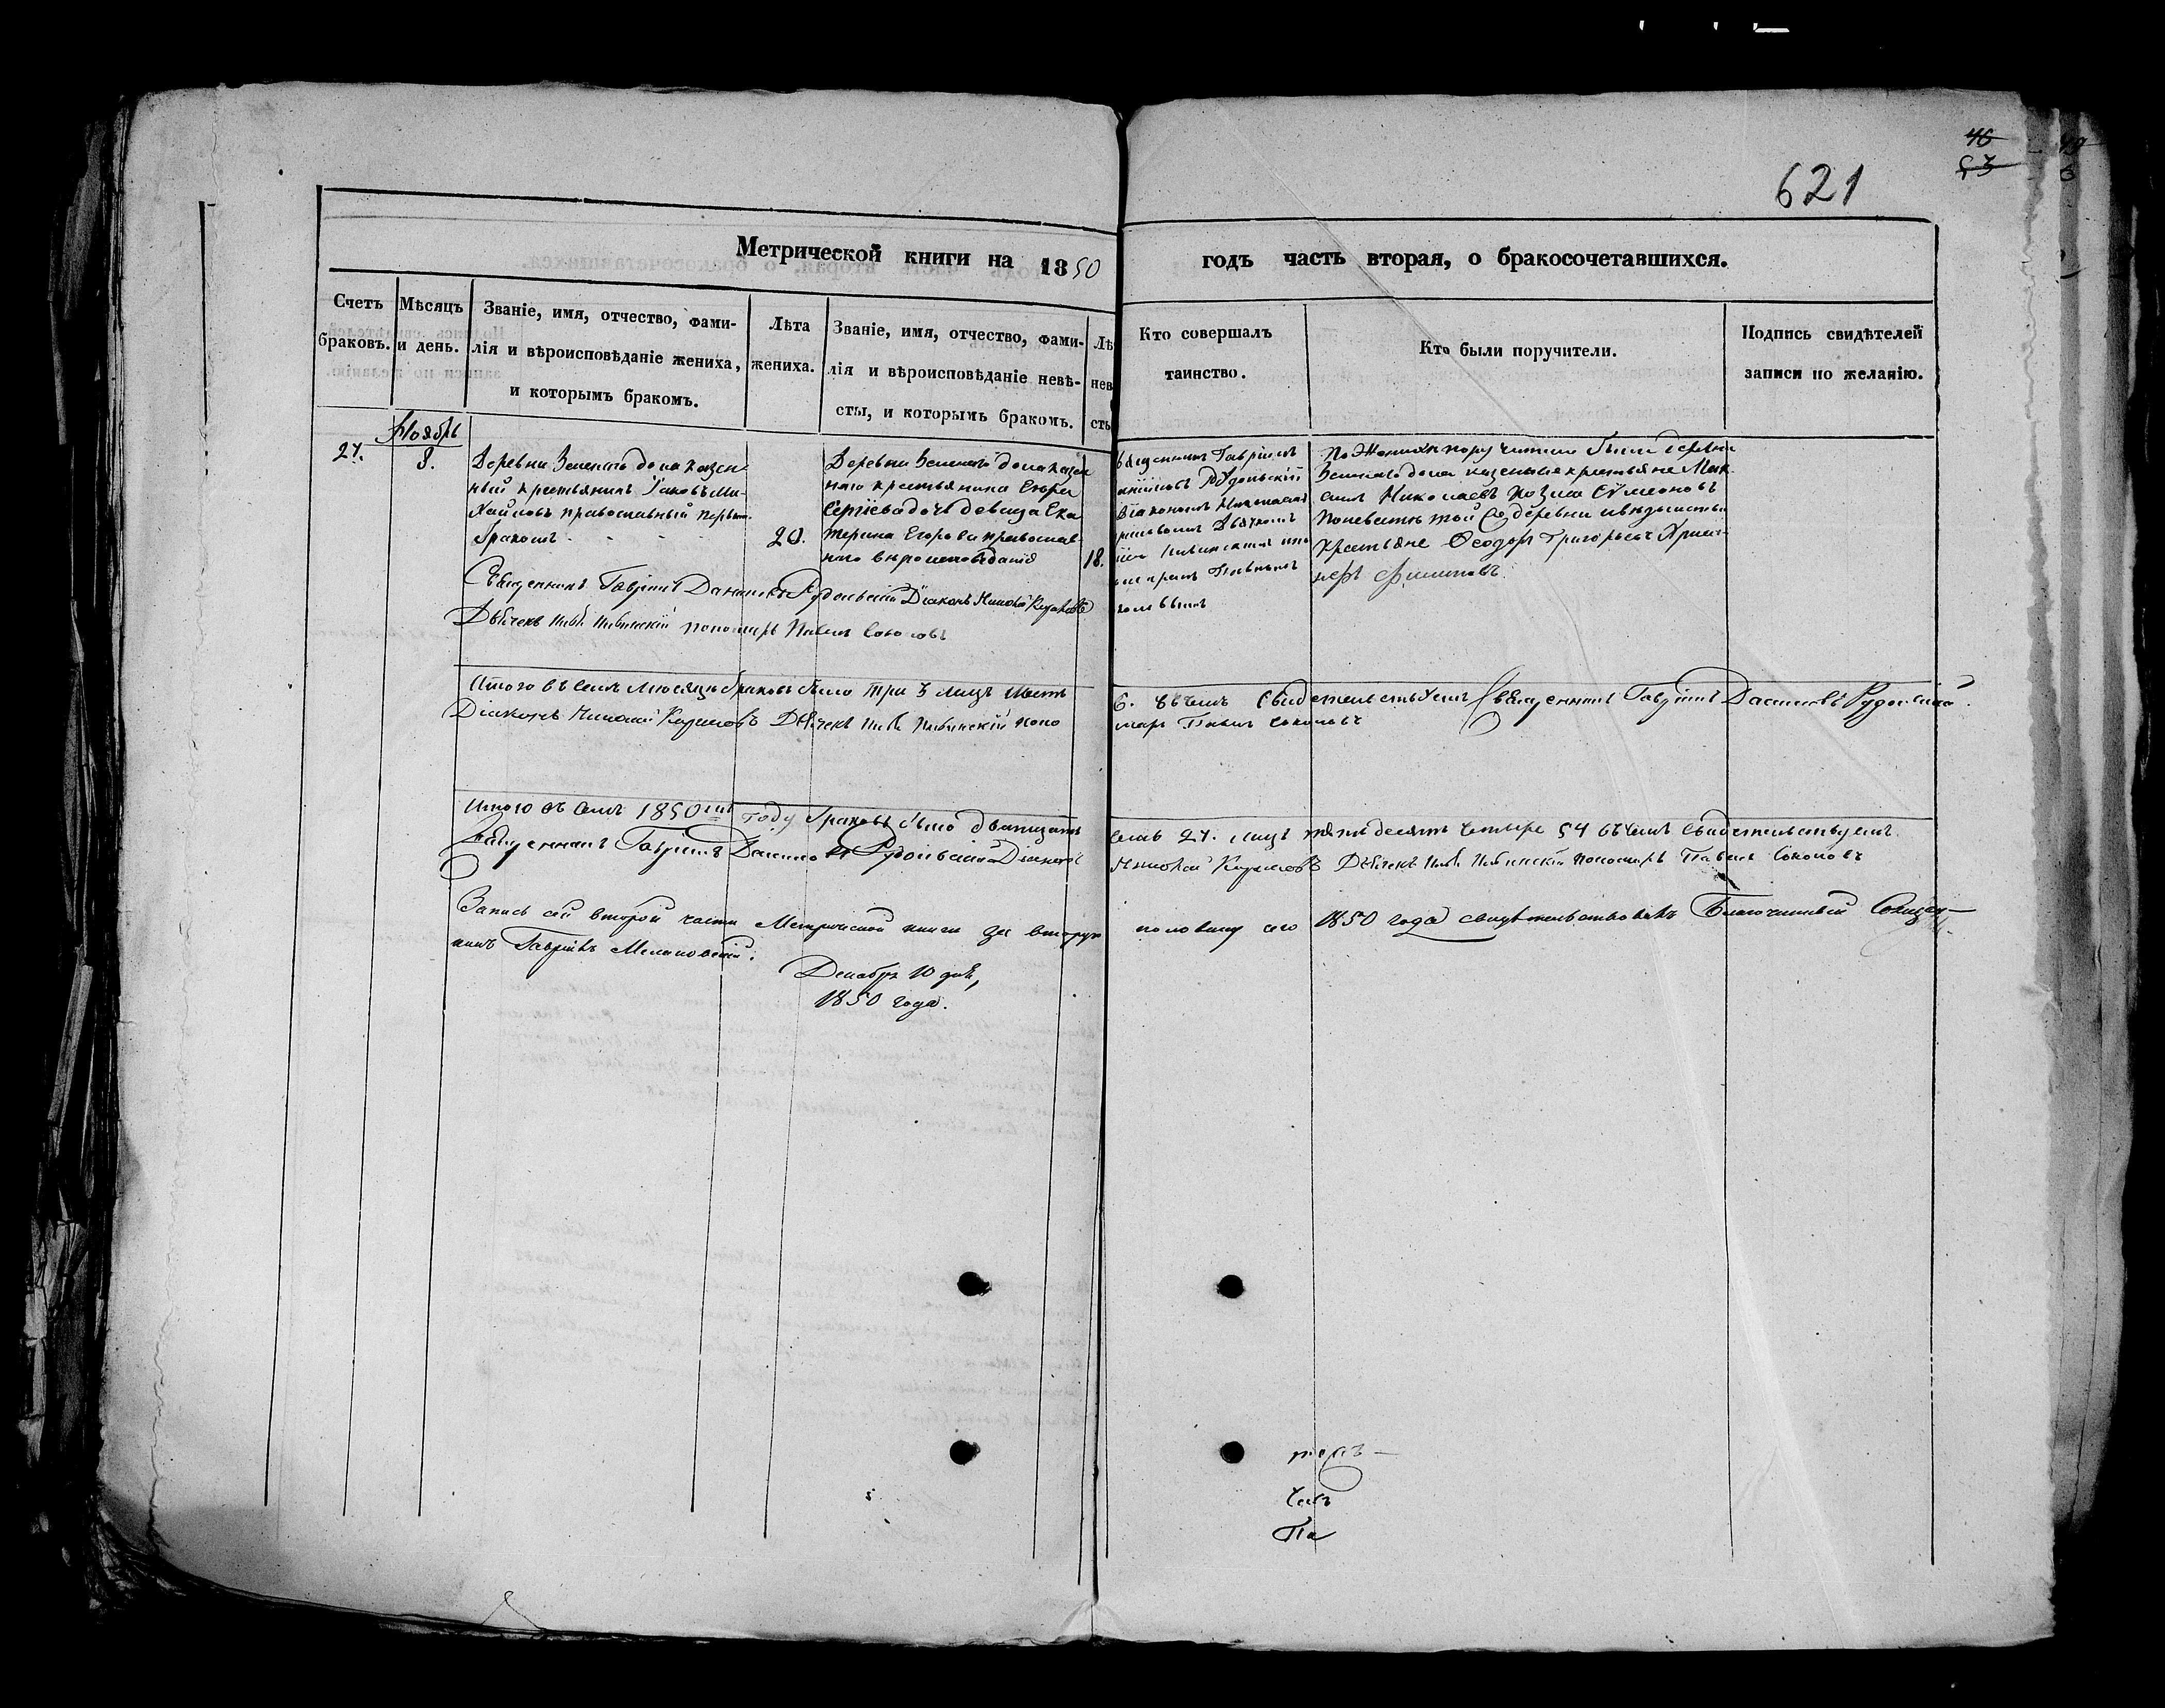 46
53
621
Метрической книги на 1850 годъ часть вторая, о бракосочетавшихся.
Счетъ браковъ.
Мѣсяцъ и день.
Званіе, имя, отчество, фами-
лія и вѣроисповѣданіе жениха,
и которымъ бракомъ.
Лѣта
жениха.
Званіе, имя, отчество, фами-
лія и вѣроисповѣданіе невѣ-
сты, и которымъ бракомъ.
Лѣ
нев
сты
Кто совершалъ
таинство.
Кто были поручители.
Подпись свидѣтелей
записи по желанію.
27.
Ноябрь
8.
Деревни Зеленого дола казен
ный крестьянинъ Іаковъ Ми-
хайловъ православный первымъ
бракомъ
20.
Деревни Зеленого дола казен
наго крестьянина Егора
Сергіева дочь девица Ека
терина Егорова православ
наго вероисповеданія
18.
священникъ Гавріилъ
Рудольскій
Діакономъ Николаемъ
Дьячкомъ
Павломъ
По Женихе поручители были деревни
Зеленаго дола казенные крестьяне Мак
симъ Николаевъ Козма Сѵмеоновъ
По невесте той же деревни и ведомства
крестьяне Ѳеодоръ Григорьевъ
Филиповъ
Священникъ Гавріилъ Даниловъ Рудольскій Діаконъ Николай Кириловъ
Дьячекъ пономарь Павелъ Соколовъ
Итого въ семъ месяце браковъ было три 3 лицъ шесть
6. въ чемъ свидетельствуемъ Священникъ Гавріилъ Даниловъ Рудольскій.
Діаконъ Николай Кириловъ Дьячекъ поно
марь Павелъ Соколовъ
Итого въ семъ 1850мъ году браковъ было двадцать
семь 27. лицъ пятьдесятъ четыре 54 въ чемъ свидетельствуемъ
Священникъ Гавріилъ Даниловъ Рудольскій Діаконъ
Николай Кириловъ Дьячекъ пономарь Павелъ Соколовъ
Запись сей второй части Метрической книги за вторую
половину сего 1850 года свидѣтельствовалъ Благочинный Священ-
никъ Гавріилъ
Декабря 10 дня,
1850 года.
Па